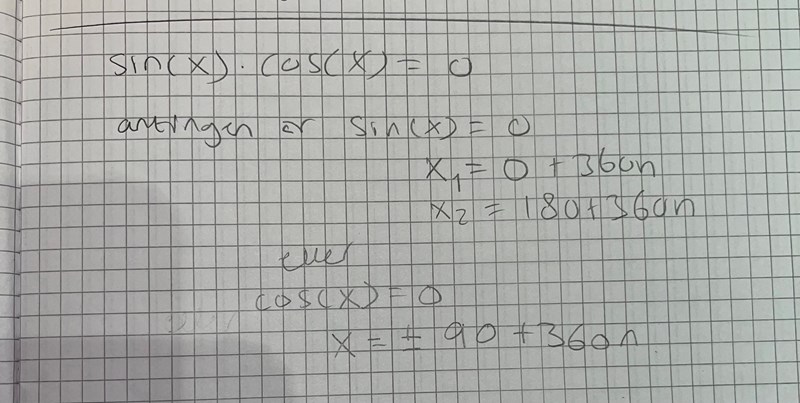 sin(x) · cos(x) = 0
antingen är sin(x) = 0
x₁ = 0 + 360n
x₂ = 180 + 360n
eller
cos(x) = 0
x = ± 90 + 360n